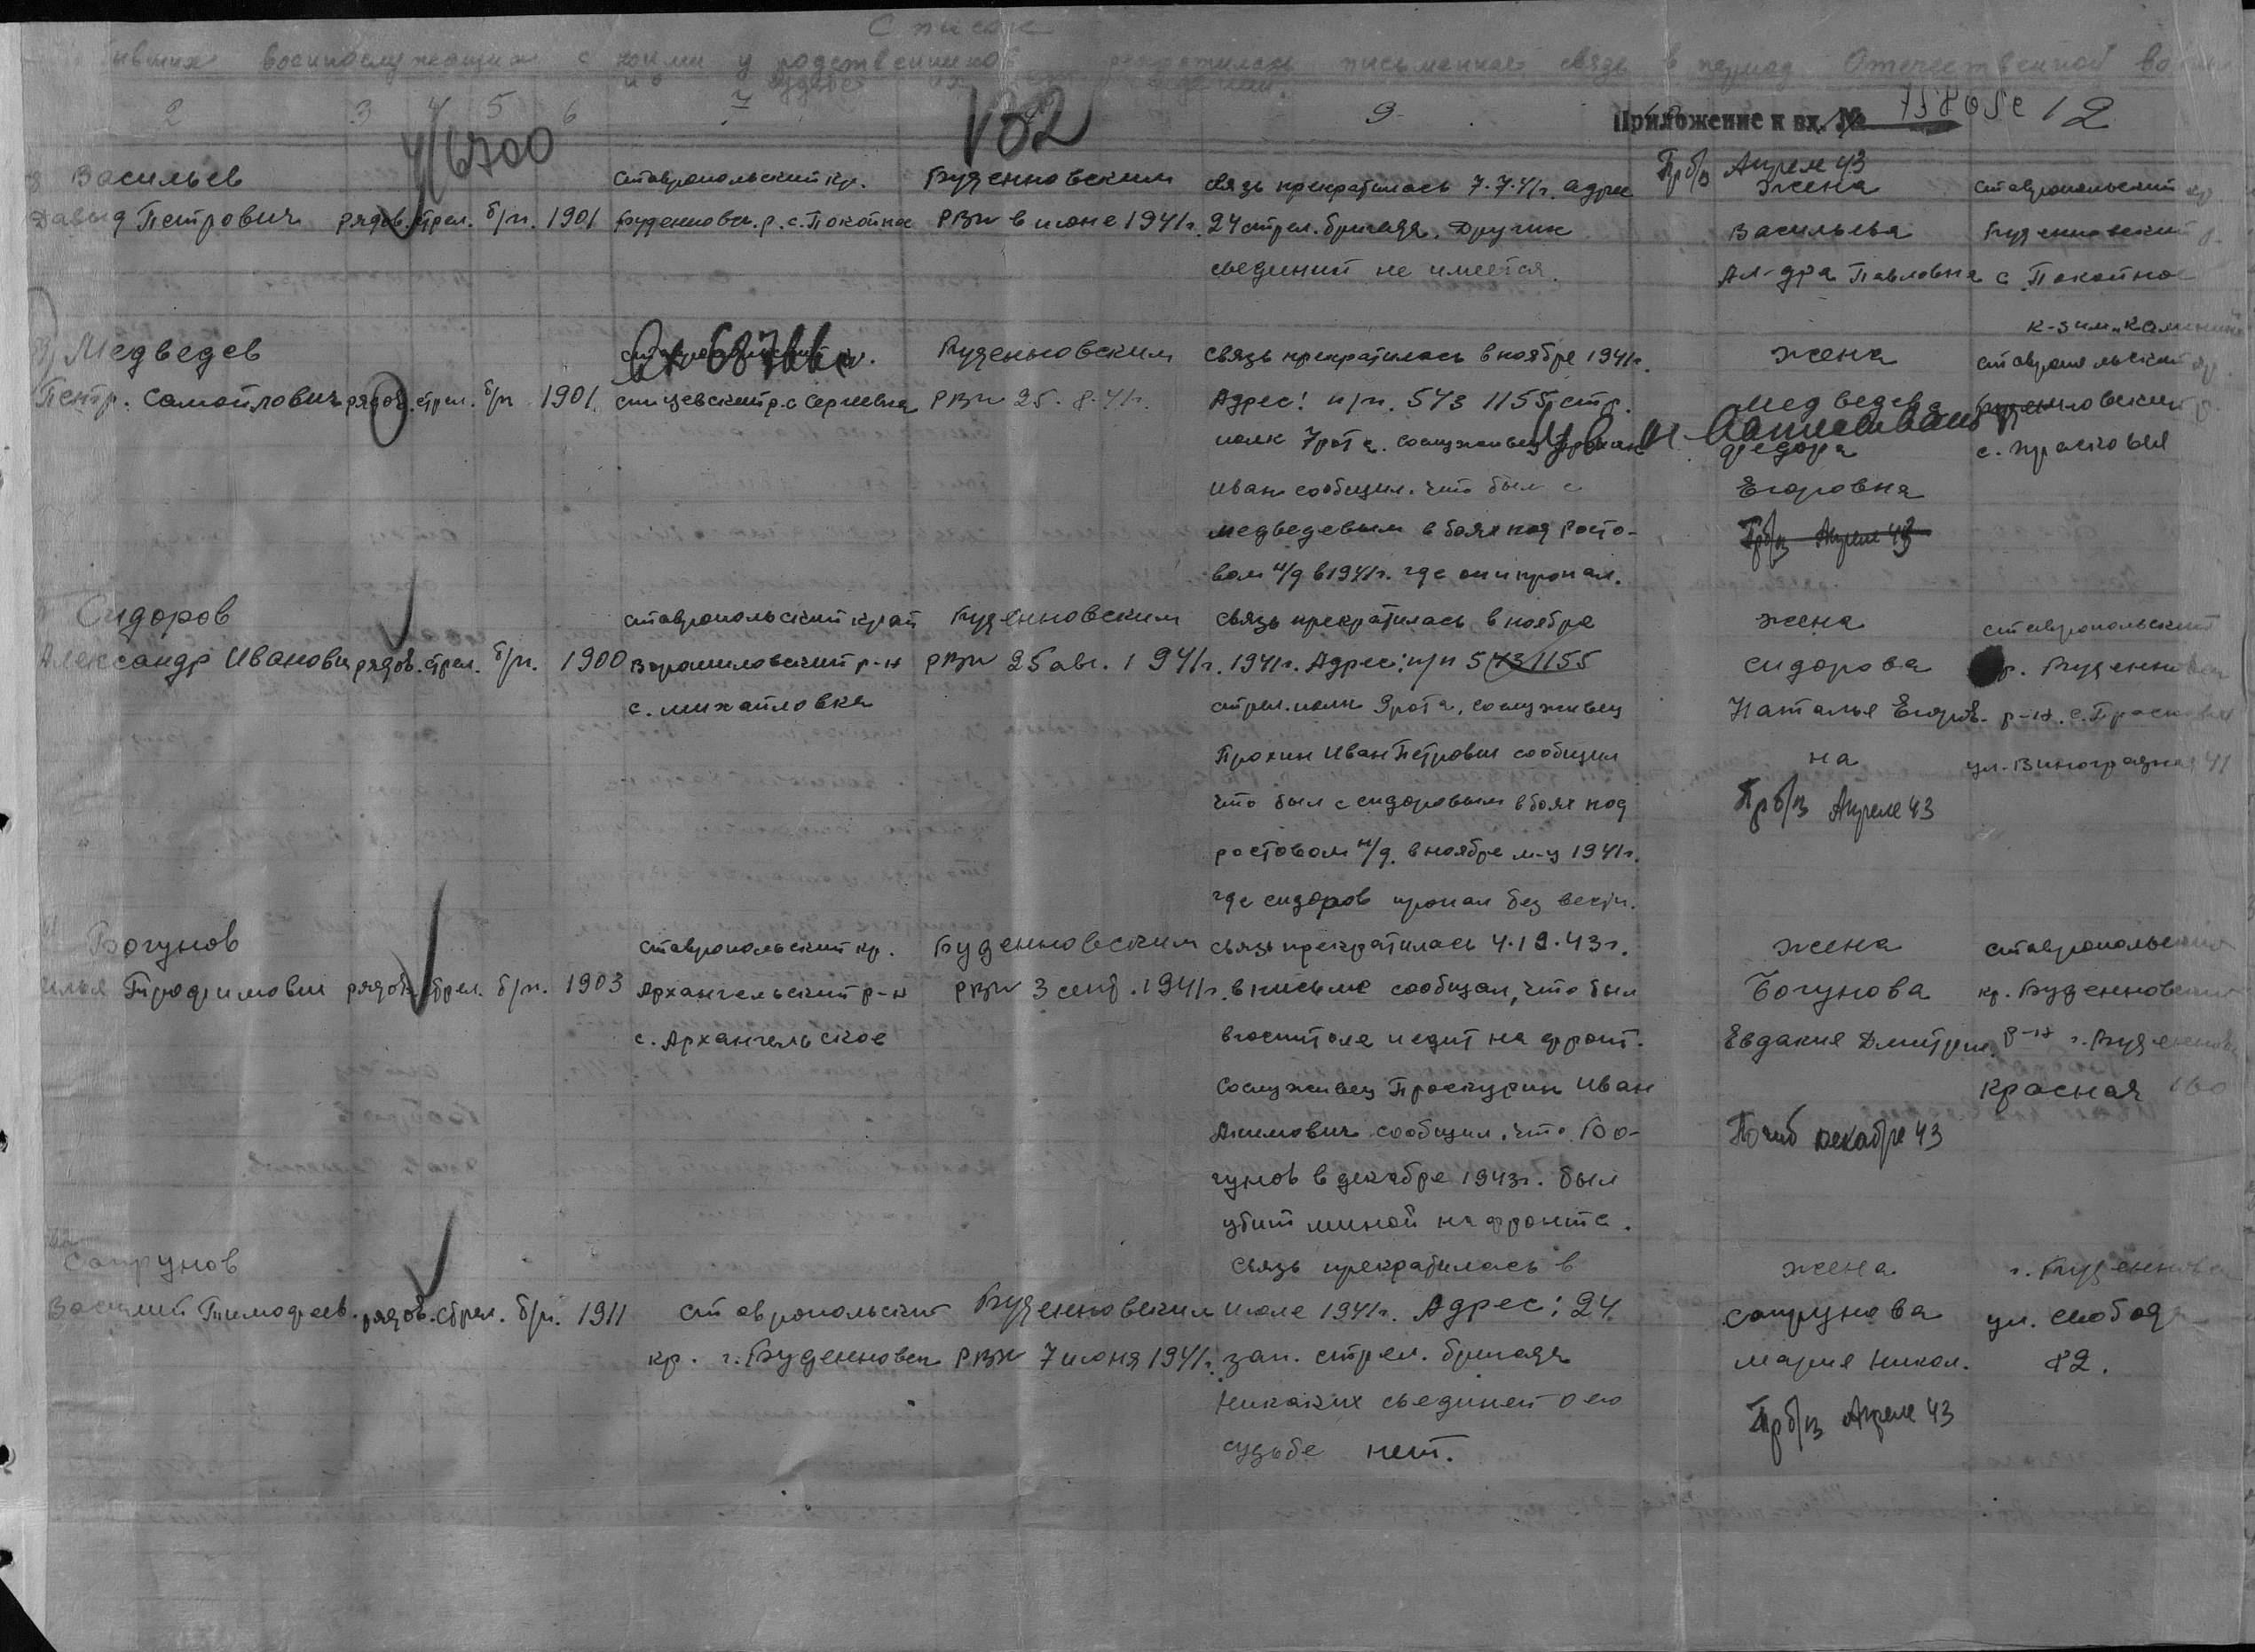 Список
бывших военнослужащих с коими у родственников прекратилась письменная связь в период Отечественной войны
и о судьбе их
2 3 4 5 6 7 9
Приложение к вх. № 75805с 12
4/6700
132
Васильев
Давыд Петрович рядов. стрел. б/п. 1901
Ставропольский кр.
Буденновск. р. с. Покойное
Буденновским
РВК в июне 1941г.
связь прекратилась 7.7.41г. адрес
24 стрел. бригада. Других
свединий не имеется.
Пр б/в Апреле 43
жена
Васильева
Ал-дра Павловна
Ставропольский кр.
Буденновский р.
с. Покойное
Медведев
Петр. Самойлович рядов. стрел. б/п 1901.
вх 68766с
Спицевский р. с Сергиевка
Буденновским
РВК 25.8.41г.
связь прекратилась в ноябре 1941г.
Адрес: п/п. 573 1155 стр.
полк 7 рота. сослуживец Прохин
Иван сообщил. что был с
медведевым в боях под Росто-
вом н/д в 1941г. где он и пропал.
жена
Медведева
Федора
Егоровна
Пр б/в Апреле 43
к-з им. Калинина
Ставропольский кр.
Буденновский р.
с. Прасковея
Сидоров
Александр Иванович рядов. стрел. б/п. 1900
Ставропольский край
Ворошиловский р-н
с. михайловка
Буденновским
РВК 25 авг. 1941г.
связь прекратилась в ноябре
1941г. Адрес: п/п 573 1155
стрел. полк 9 рота, сослуживец
Прохин Иван Петрович сообщил
что был с сидоровым в боях под
ростовом н/д. в ноябре м-ц 1941г.
где сидоров пропал без вести.
жена
Сидорова
Наталья Егоров-
на
Пр б/в Апреле 43
Ставропольский
кр. Буденновск
р-н. с. Прасковея
ул. Виноградная 41
Богунов
Илья Трофимович рядов. стрел. б/п. 1903
Ставропольский кр.
Архангельский р-н
с. Архангельское
Буденновским
РВК 3 сент. 1941г.
связь прекратилась 4.19.43г.
в письме сообщал, что был
в госпитоле и едит на фронт.
Сослуживец Проскурин Иван
Акимович сообщил, что Бо-
гунов в декабре 1943г. был
убит миной на фронте.
жена
Богунова
Евдакия Дмитрие.
Погиб декабре 43
Ставропольский
кр. Буденновский
р-н г. Буденновск
Красная 160
Сапрунов
Василий Тимофеев. рядов. стрел. б/п. 1911
Ставропольский
кр. г. Буденновск
Буденновским
РВК 7 июня 1941г.
связь прекратилась в
июле 1941г. Адрес: 24
зап. стрел. бригада
Никаких свединей о его
судьбе нет.
жена
Сапрунова
Мария Никол.
Пр б/в Апреле 43
г. Буденновск
ул. Свобода
82.